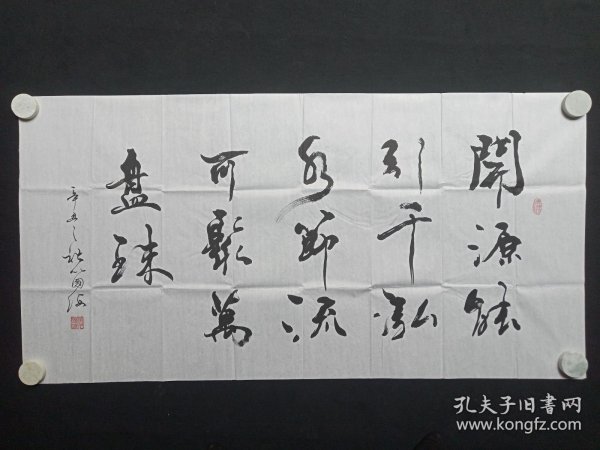 開源能
引千泓
水節流
可聚萬
盘珠
辛丑之秋國
孔夫子旧書网
www.kongfz.com